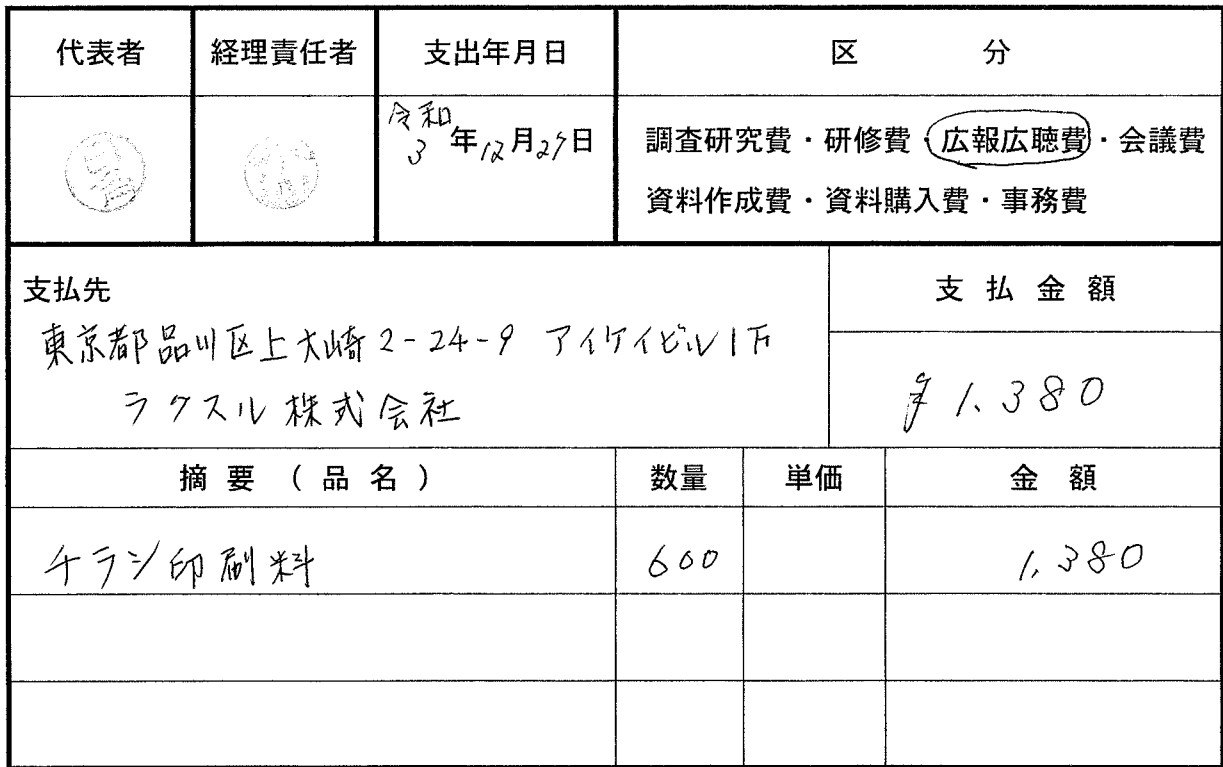 代表者 経理責任者 支出年月日 区 分
令和
3 年12月27日
調査研究費・研修費・広報広聴費・会議費
資料作成費・資料購入費・事務費
支払先 支 払 金 額
東京都品川区上大崎2-24-9 アイケイビル1F
ラクスル株式会社
¥1,380
摘 要 ( 品 名 ) 数量 単価 金 額
チラシ印刷料 600 1,380